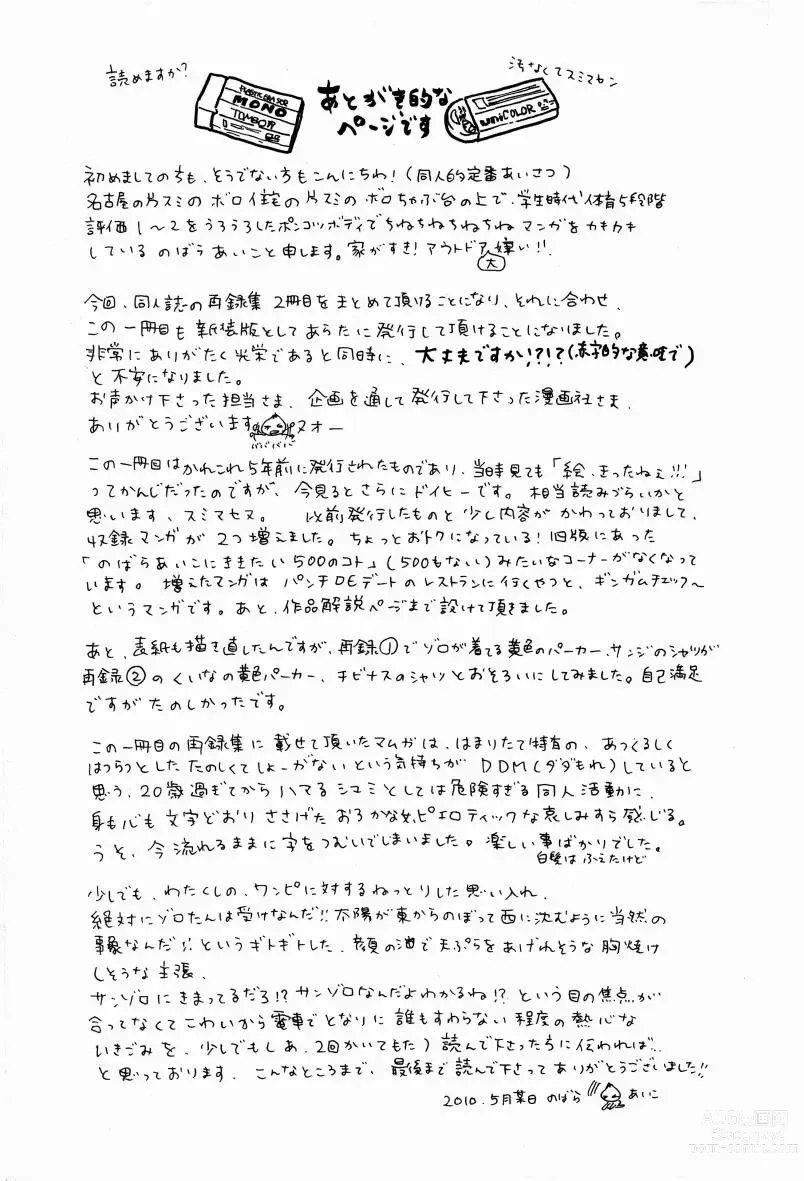 読めますか?
汚なくてスミマセン
PLASTIC ERASER
MONO
TOMBOW
あとがき的な
ページです
uni COLOR
初めましての方も、そうでない方もこんにちわ!(同人的定番あいさつ)
名古屋の片スミの ボロイ住宅の片スミの ボロちゃぶ台の上で、学生時代体育5段階
評価1〜2をうろうろしたポンコツボディでちねちねちねちね マンガをカキカキ
している のばらあいこと申します。家がすき! アウトドア大嫌い!!
今回、同人誌の再録集 2冊目をまとめて頂けることになり、それに合わせ、
この一冊目も新装版としてあらたに発行して頂けることになりました。
非常にありがたく光栄であると同時に、大丈夫ですか!?!?(赤字的な意味で)
と不安になりました。
お声かけ下さった担当さま、企画を通して発行して下さった漫画社さま、
ありがとうございます ヌオー
ババババ
この一冊目はかれこれ5年前に発行されたものであり、当時見ても「絵、きったねぇ!!!」
ってかんじだったのですが、今見るとさらにドイヒーです。相当読みづらいかと
思います、スミマセヌ。 以前発行したものと少し内容が かわっておりまして、
収録マンガが2つ増えました。ちょっとおトクになっている! 旧版にあった
「のばらあいこにききたい500のコト」(500もない)みたいなコーナーがなくなって
います。 増えたマンガは パンチDEデートのレストランに行くやつと、ギンガムチェック〜
というマンガです。あと、作品解説ページまで設けて頂きました。
あと、表紙も描き直したんですが、再録①でゾロが着てる黄色のパーカー、サンジのシャツが
再録②のくいなの黄色パーカー、チビナスのシャツとおそろいにしてみました。自己満足
ですがたのしかったです。
この一冊目の再録集に載せて頂いたマムガは、はまりたて特有の、あつくるしく
はつらつとした たのしくてしょーがないという気持ちが DDM(ダダもれ)していると
思う、20歳過ぎてからハマるシュミとしては危険すぎる同人活動に、
身も心も文字どおりささげた おろかな女、ピエロティックな哀しみすら感じる。
うそ、今流れるままに字をつむいでしまいました。楽しい事ばかりでした。
白髪はふえたけど
少しでも、わたくしの、ワンピに対するねっとりした思い入れ、
絶対にゾロたんは受けなんだ!!太陽が東からのぼって西に沈むように当然の
事象なんだ!! というギトギトした、顔の油で天ぷらをあげれそうな胸焼け
しそうな主張、
サンゾロにきまってるだろ!? サンゾロなんだよわかるね!? という目の焦点が
合ってなくてこわいから電車でとなりに誰もすわらない程度の熱心な
いきごみを、少しでも(しあ、2回かいてもた)読んで下さった方に伝われば…
と思っております、こんなところまで、最後まで読んで下さってありがとうございました!!
2010.5月某日 のばら あいこ